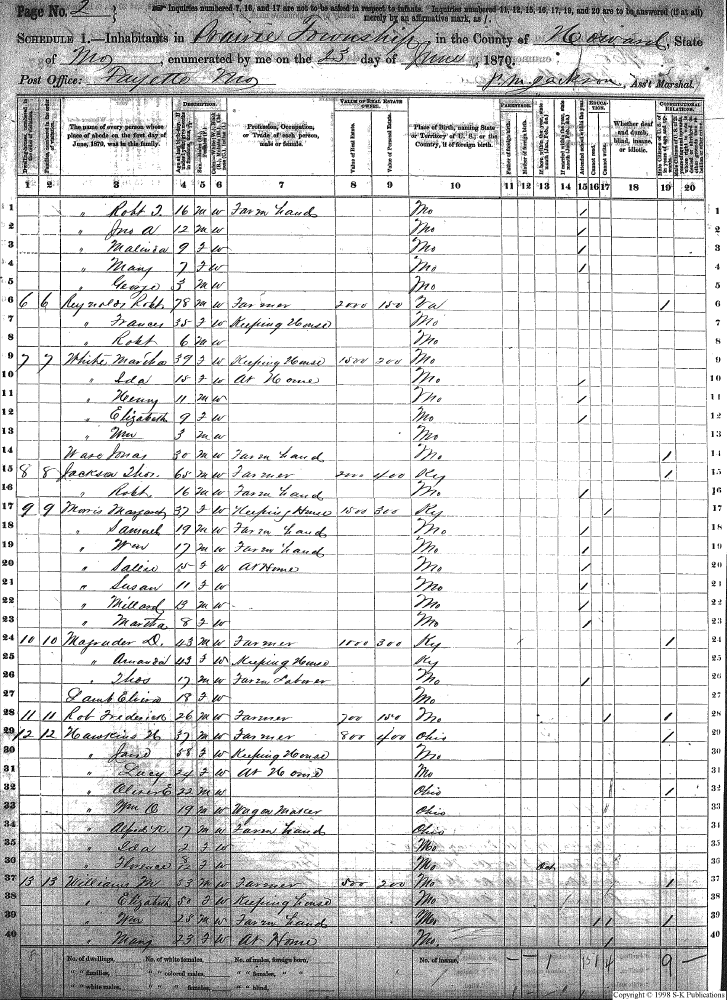 Page No. 2
Inquiries numbered 7, 16, and 17 are not to be asked in respect to infants. Inquiries numbered 11, 12, 15, 16, 17, 19, and 20 are to be answered (if at all)
merely by an affirmative mark, as /.
SCHEDULE 1.—Inhabitants in Prairie Township, in the County of Howard, State
of Mo, enumerated by me on the 23 day of June, 1870.
Post Office: Fayette Mo
Jackson, Ass't Marshal.
The name of every person whose place of abode on the first day of June, 1870, was in this family.
DESCRIPTION.
Profession, Occupation, or Trade of each person, male or female.
VALUE OF REAL ESTATE OWNED.
Value of Real Estate.
Value of Personal Estate.
Place of Birth, naming State or Territory of U. S.; or the Country, if of foreign birth.
PARENTAGE.
Father of foreign birth.
Mother of foreign birth.
EDUCATION.
Attended school within the year.
Cannot read.
Cannot write.
Whether deaf and dumb, blind, insane, or idiotic.
CONSTITUTIONAL RELATIONS.
1 2 3 4 5 6 7 8 9 10 11 12 13 14 15 16 17 18 19 20
1 " Robt J. 16 m w Farm hand Mo / 1
2 " Jno A 12 m w Mo / 2
3 " Malinda 9 f w Mo / 3
4 " Mary 7 f w Mo / 4
5 " George 3 m w Mo 5
6 6 6 Reynolds Robt 78 m w Farmer 2000 150 Va / 6
7 " Frances 35 f w Keeping House Mo 7
8 " Robt 6 m w Mo 8
9 7 7 White Martha 39 f w Keeping House 1500 200 Mo 9
10 " Ida 15 f w At Home Mo / 10
11 " Henry 11 m w Mo / 11
12 " Elizabeth 9 f w Mo / 12
13 " Wm 3 m w Mo 13
14 Jonas 30 m w Farm hand Mo / 14
15 8 8 Jackson Thos. 65 m w Farmer 400 Ky / 15
16 " Robt. 16 m w Farm hand Mo / 16
17 9 9 Morris Margaret 37 f w Keeping House 1500 300 Ky / 17
18 " Samuel 19 m w Farm hand Mo / 18
19 " Wm 17 m w Farm hand Mo / 19
20 " Sallie 15 f w At Home Mo / 20
21 " Susan 11 f w Mo / 21
22 " Millard 13 m w Mo / 22
23 " Martha 8 f w Mo / 23
24 10 10 Magruder D. 43 m w Farmer 1000 300 Ky / 24
25 " Amanda 43 f w Keeping House Ky 25
26 " Thos 17 m w Farm Laborer Mo / 26
27 Lamb Elvira 18 f w Mo 27
28 11 11 Rob Frederick 26 m w Farmer 700 150 Mo / / 28
29 12 12 Hawkins H 57 m w Farmer 800 400 Ohio / 29
30 " Jane 58 f w Keeping House Mo 30
31 " Lucy 24 f w At Home Mo 31
32 " Oliver E 22 m w Ohio / 32
33 " Wm C 19 m w Wagon Maker Ohio 33
34 " Alfred K. 17 m w Farm hand Ohio 34
35 " Ida 2 f w Mo 35
36 " Florence f w Mo Oct 36
37 13 13 Williams M 53 m w Farmer 500 200 Mo / 37
38 " Elizabeth 50 f w Keeping house Mo 38
39 " Wm 25 m w Farm hand Mo / / / 39
40 " Mary 23 f w At Home Mo. / 40
No. of dwellings, No. of white females, No. of males, foreign born, No. of insane,
" " families, " " colored males, " " females, " "
" " white males, " " females, " " blind,
Copyright © 1998 S-K Publications